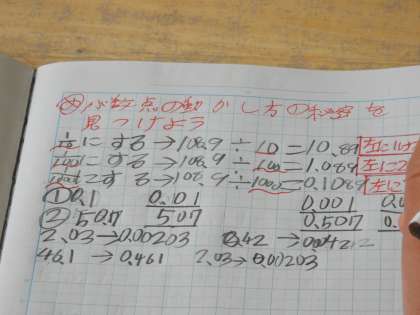 め 小数点の動かし方の秘密を
見つけよう
1/10にする→108.9÷10=10.89 左に1け
1/100にする→108.9÷100=1.089 左に2
1/1000にする→108.9÷1000=0.1089 左に
① 0.1 0.101 0.001
② 50.7 5.07 0.507
2.03→0.00203 →0.04212
46.1→0.461 2.03→0.00203